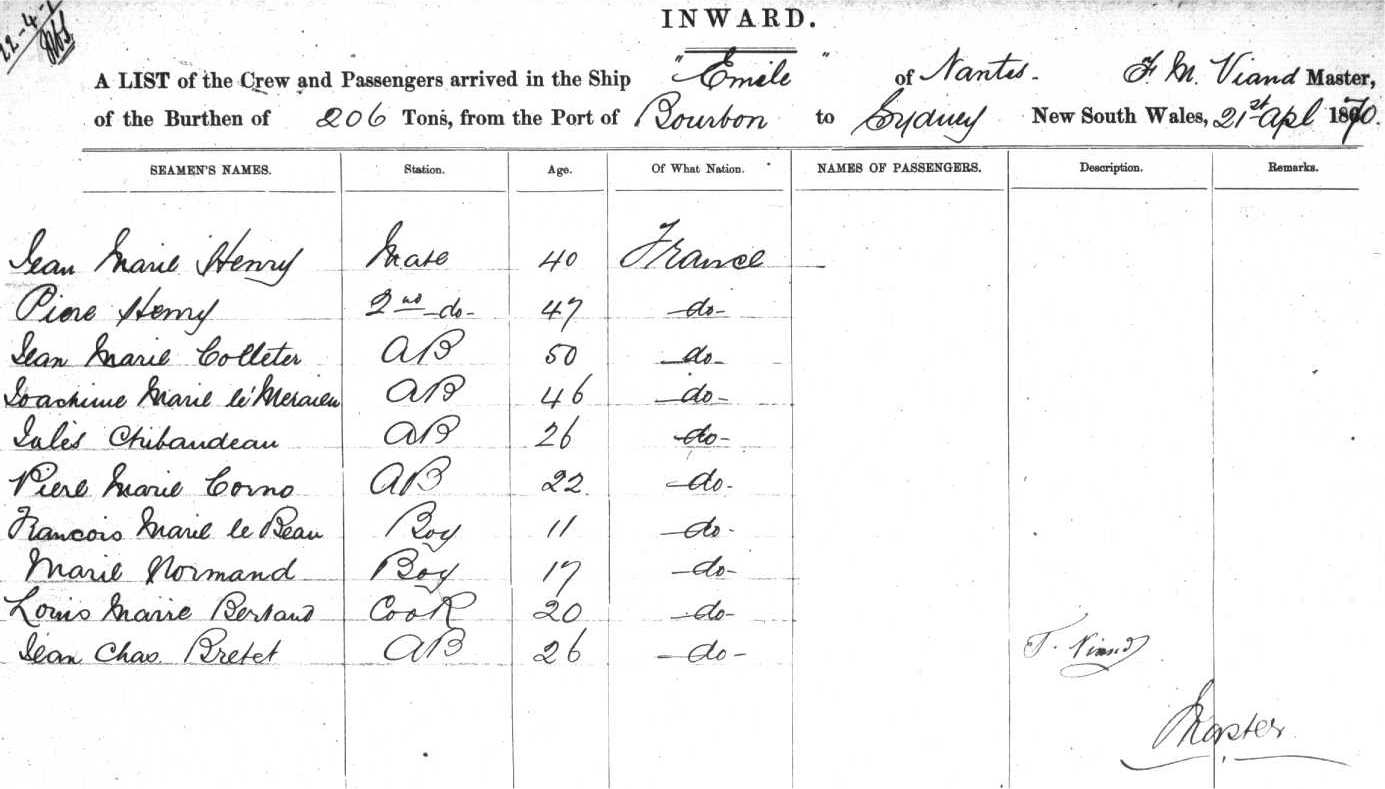 22-4-7
INWARD.
A LIST of the Crew and Passengers arrived in the Ship "Emile" of Nantes. F M. Viand Master,
of the Burthen of 206 Tons, from the Port of Bourbon to Sydney New South Wales, 21st Apl 1870.
SEAMEN'S NAMES. Station. Age. Of What Nation. NAMES OF PASSENGERS. Description. Remarks.
Jean Marie Henry Mate 40 France
Piere Henry 2nd do- 47 do-
Jean Marie Colleter AB 50 do-
Joachime Marie le AB 46 do-
Jules Chibaudeau AB 26 do-
Piere Marie Corno AB 22. do-
Francois Marie le Beau Boy 11 do-
Marie Normand Boy 17 do-
Louis Marie Bertaud Cook 20 do-
Jean Chas. Bretet AB 26 do-
F. Viand
Master